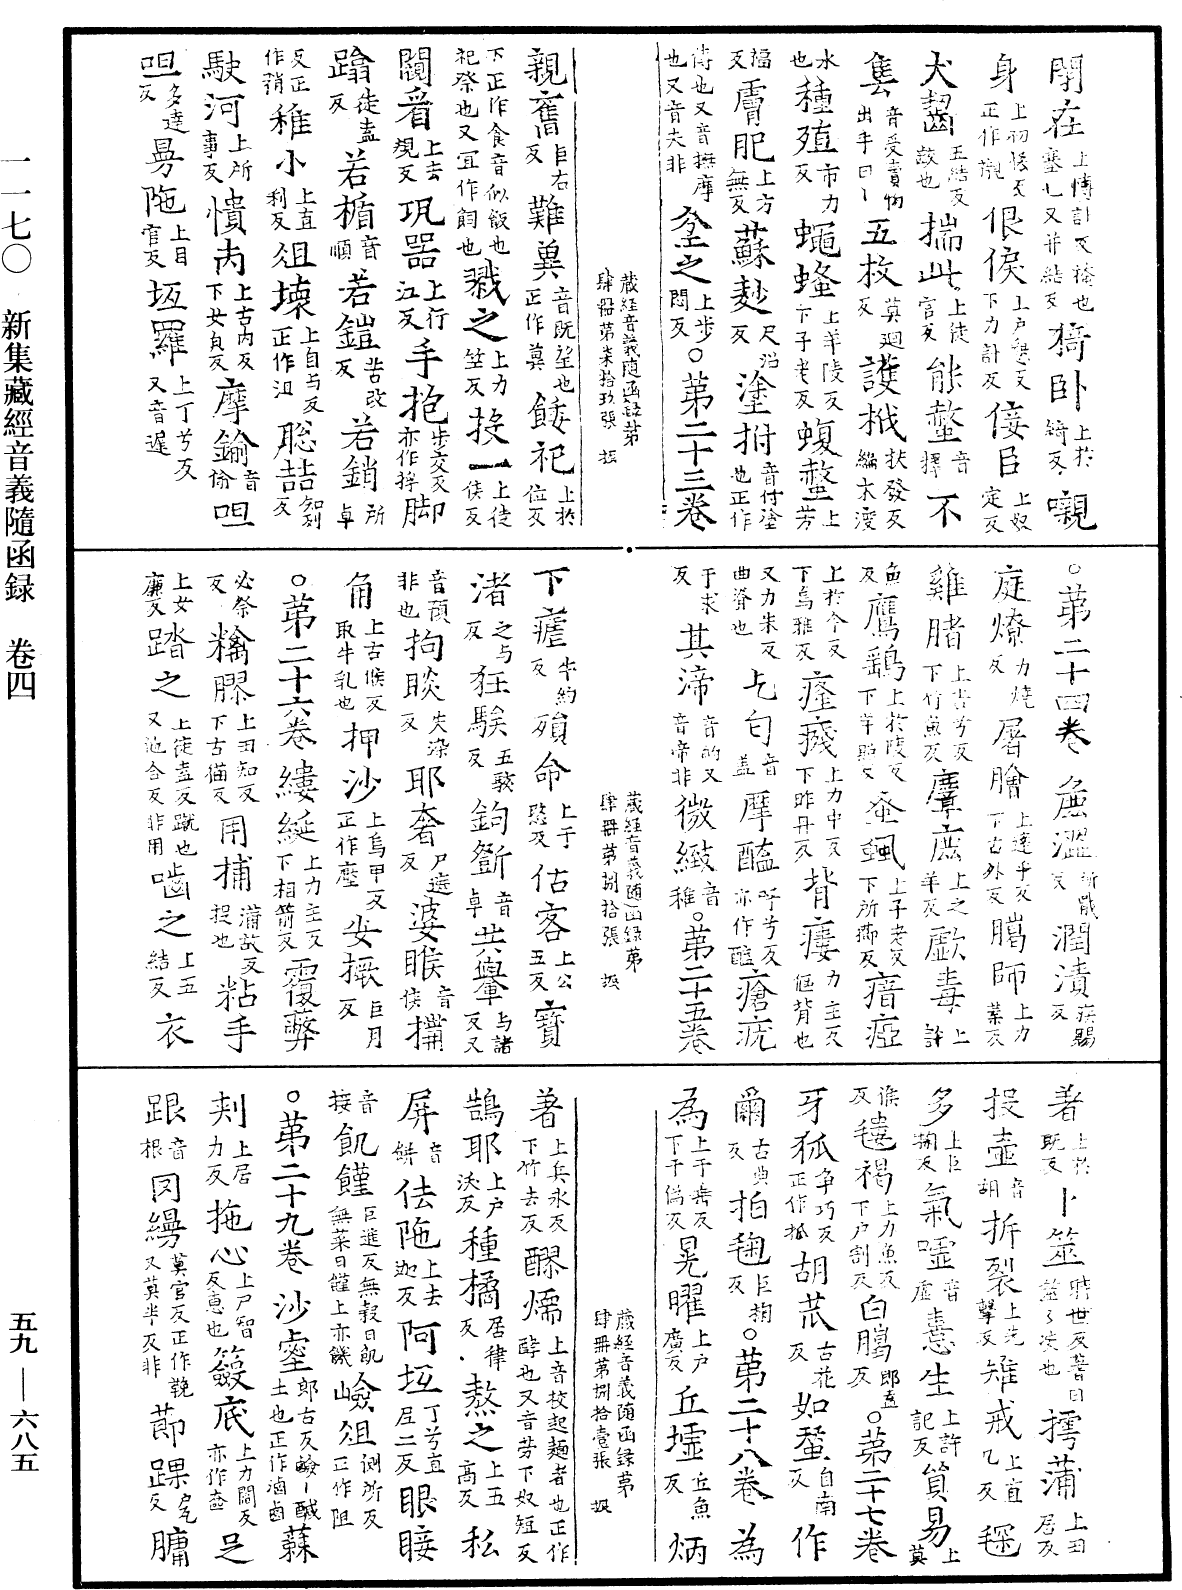 一一七〇　新集藏經音義隨函録　卷四
五九—六八五
閇在上博計反掩也塞也又并結反　𢕪卧上於綺反　嚫
身上初恡反正作䞋　佷戾上戶懇反下力計反　佞臣上奴定反
犬齧五結反故也　揣此上徒官反　能螫音擇　不
售音受賣物出手曰丨　五枚莫廻反　護栰扶發反編木渡
水也　種殖市力反　蠅蚤上羊陵反下子老反　蝮螫上芳
福反　膚肥上方無反　蘇麨尺沼反　塗拊音付塗也正作
傅也又音撫摩也又音夫非　坌之上步悶反　○第二十三卷
藏經音義随函録第肆冊第柒拾玖張　振
親舊巨右反　難冀音既望也正作冀　餧祀上於位反
下正作食音似飯也祀祭也又宜作飼也　戮之上力竺反　投一上徒侯反
闚看上去規反　䂫器上行江反　手抱步交反亦作捊　脚
蹹徒盍反　若楯音順　若鎧苦改反　若銷所卓
反正作矟　稚小上直利反　俎壞上自与反正作沮　聡喆知列反
駛河上所事反　憒丙上古內反下女皃反　摩鍮音偷　呾
呾多達反　曼陁上目官反　坻羅上丁兮反又音遲
○第二十四卷　麁澀所戢反　潤漬疾賜反
庭燎力燒反　屠膾上達乎反下古外反　臈師上力業反
雞腊上吉兮反下竹魚反　麞䴥上之羊反　歐毒上許
魚反　鷹鷂上於陵反下羊照反　蚤蝨上子老反下所櫛反　瘖瘂
上於今反下烏雅反　癃殘上力中反下昨丹反　背瘻力主反傴背也
又力朱反曲脊也　乞匃音蓋　摩醯呼兮反亦作醯　瘡疣
于求反　其渧音的又音帝非　微緻音稚　○第二十五卷
藏經音義随函録第肆冊第捌拾張　振
下瘧牛約反　殞命上于愍反　估客上公五反　寳
渚之与反　狂騃五駭反　鈎斵音卓　共轝与諸反又
音預非也　拘睒失染反　耶奢尸遮反　婆睺音侯　㨍
角上古候反取牛乳也　押沙上烏甲反正作壓　安撅巨月反
○第二十六卷　縷綖上力主反下相箭反　覆弊
必祭反　黐膠上丑知反下古猫反　用捕蒲故反捉也　粘手
上女廉反　踏之上徒盍反蹴也又池合反非用　嚙之上五結反　衣
著上於既反　卜筮時世反蓍曰筮又決也　摴蒲上丑居反
投壺音胡　拆裂上尤擊反　雉戒上直几反　毱
多上巨掬反　氣噓音虛　憙生上許記反　貿易上莫
候反　𣯫褐上力魚反下戶割反　白臈郎盍反　○第二十七卷
牙狐争巧反正作抓　胡苽古花反　如蠶自南反　作
繭古典反　拍毱巨掬反　○第二十八卷　為
為上于委反下于僞反　晃曜上戶廣反　丘墟丘魚反　炳
藏經音義随函録第肆冊第捌拾壹張　振
著上兵永反下竹去反　醪糯上音校起麵者也正作酵也又音劳下奴短反
鵠耶上戶沃反　種橘居律反　熬之上五高反　私
屏音餅　佉陁上去迦反　阿坻丁兮直尼二反　眼睫
音接　飢饉巨進反無穀曰飢無菜曰饉上亦饑　嶮俎側所反正作阻
○第二十九卷　沙𡑞郎古反鹼丨醎土也正作滷鹵　蘇
刾上居力反　拖心上尸智反恚也　籨底上力閻反亦作奩　足
跟音根　罔縵莫官反正作鞔又莫半反非　莭踝戶瓦反　𦟛